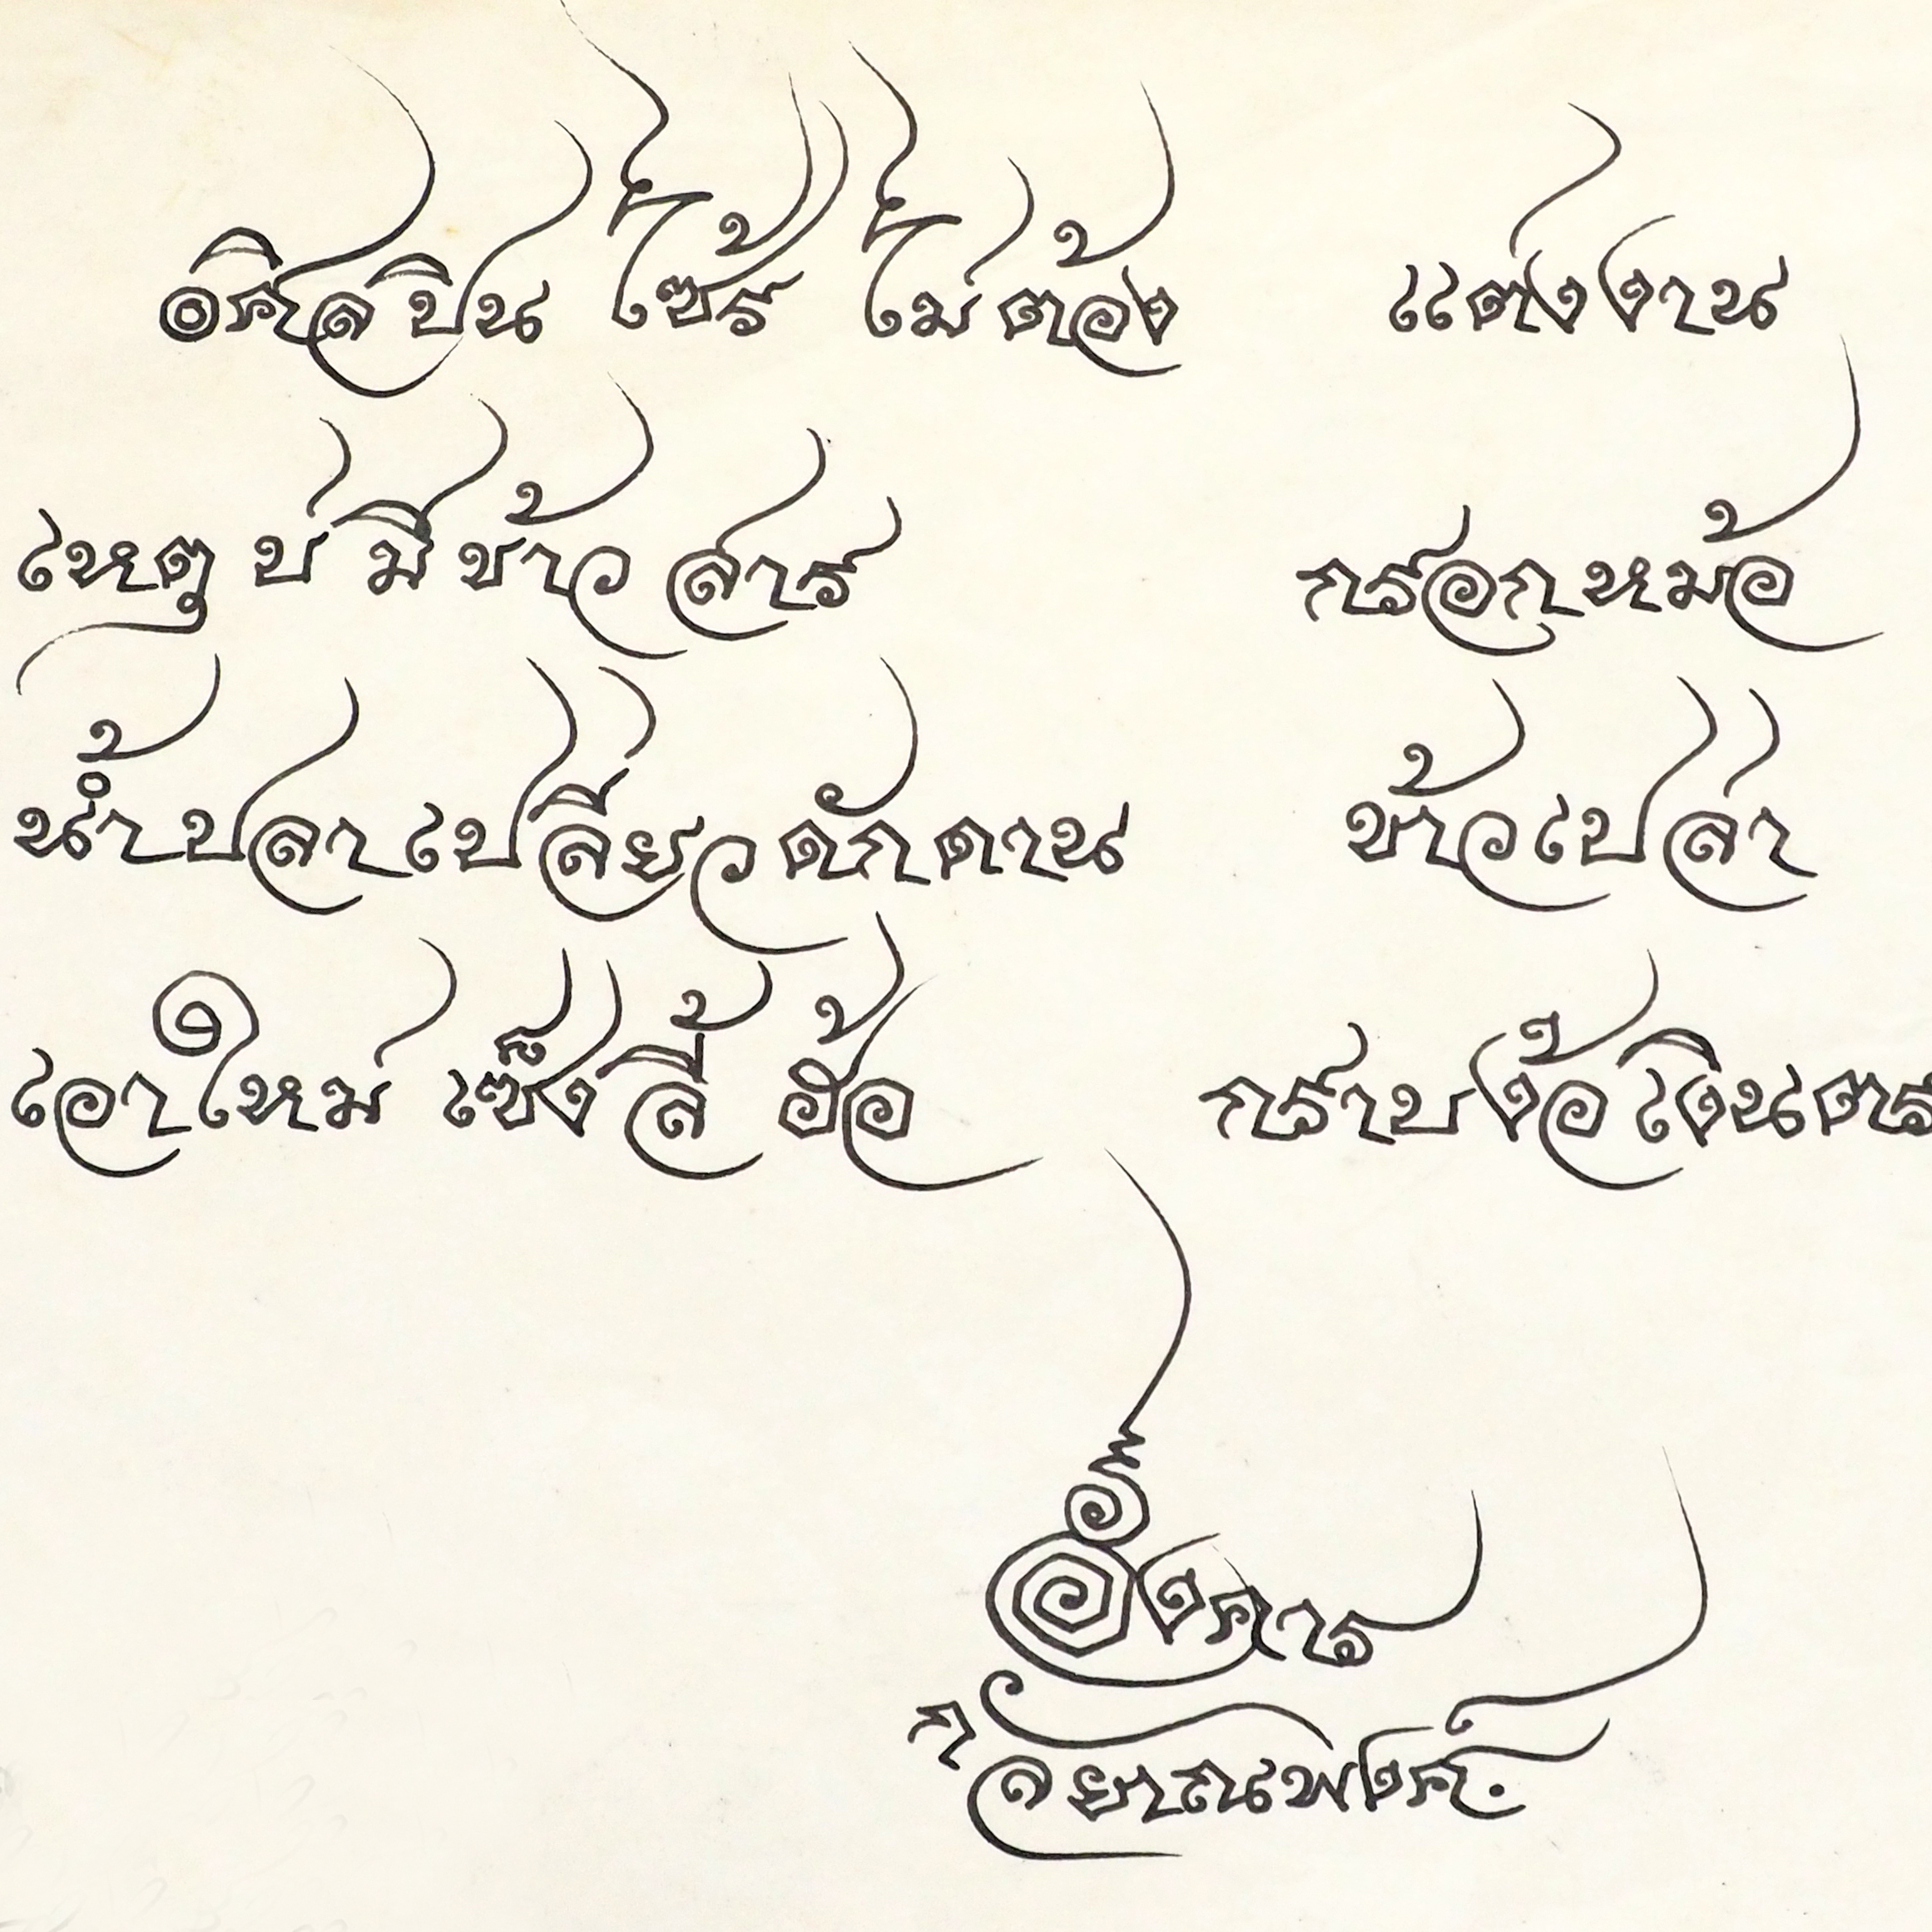 ๏ ศิลปินไซร้ไม่ต้อง แต่งงาน
เหตุ บ่ มีข้าวสาร กรอกหม้อ
น้ำปลาเปลี่ยวดักดาน ข้าวเปล่า
เอาใหม่ เซ็งลี้ ฮ้อ กราบง้อเงินตร
อังคาร
กัลยาณพงศ์.